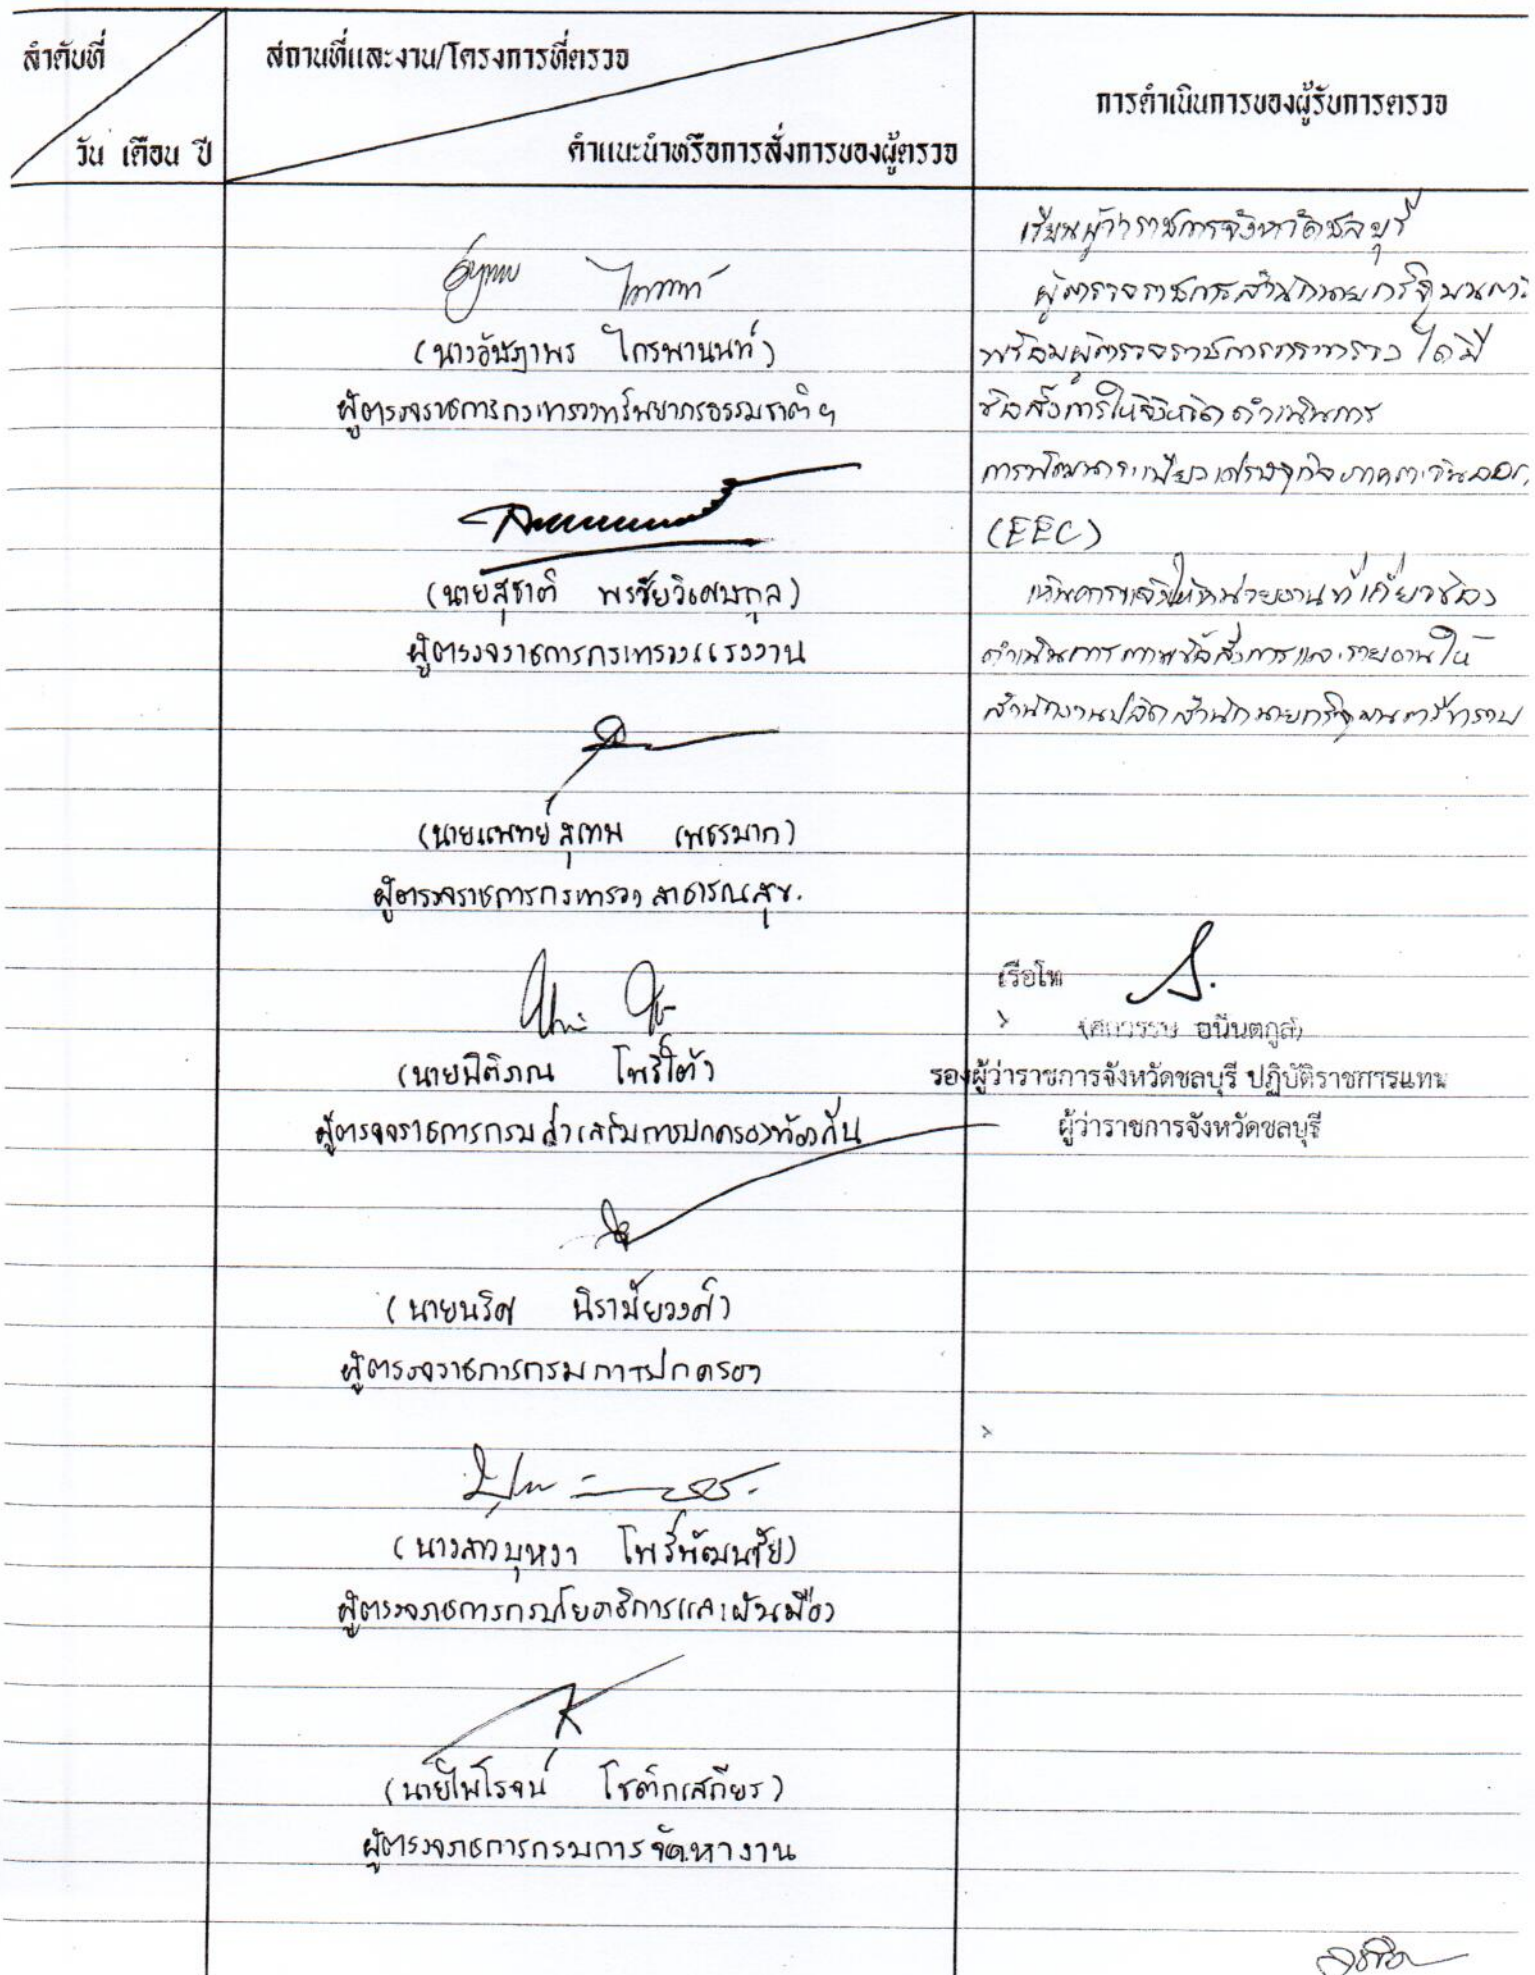 ลำดับที่
วัน เดือน ปี
สถานที่และงาน/โครงการที่ตรวจ
คำแนะนำหรือการสั่งการของผู้ตรวจ
การดำเนินการของผู้รับการตรวจ
(นางอัษฎาพร ไกรพานนท์)
ผู้ตรวจราชการกระทรวงทรัพยากรธรรมชาติฯ
(นายสุชาติ พรชัยวิเศษกุล)
ผู้ตรวจราชการกระทรวงแรงงาน
(นายแพทย์สุเทพ เพชรมาก)
ผู้ตรวจราชการกระทรวงสาธารณสุข.
(นาย โพธิ์ใต้)
ผู้ตรวจราชการกรมส่งเสริมการปกครองท้องถิ่น
(นายนริศ นิรามัยวงศ์)
ผู้ตรวจราชการกรมการปกครอง
(นางสาวบุหงา โพธิ์พัฒนชัย)
ผู้ตรวจราชการกรมโยธาธิการและผังเมือง
(นายไพโรจน์ โชติกเสถียร)
ผู้ตรวจราชการกรมการจัดหางาน
เรียน ผู้ว่าราชการจังหวัดชลบุรี
ผู้ตรวจราชการสำนักนายกรัฐมนตรี
พร้อมผู้ตรวจราชการกระทรวง ได้มี
ข้อสั่งการให้จังหวัดดำเนินการ
การพัฒนาระเบียงเศรษฐกิจภาคตะวันออก
(EEC)
เห็นควรแจ้งให้หน่วยงานที่เกี่ยวข้อง
ดำเนินการตามข้อสั่งการและรายงานให้
สำนักงานปลัดสำนักนายกรัฐมนตรีทราบ
เรือโท
อนันตกูล)
รองผู้ว่าราชการจังหวัดชลบุรี ปฏิบัติราชการแทน
ผู้ว่าราชการจังหวัดชลบุรี